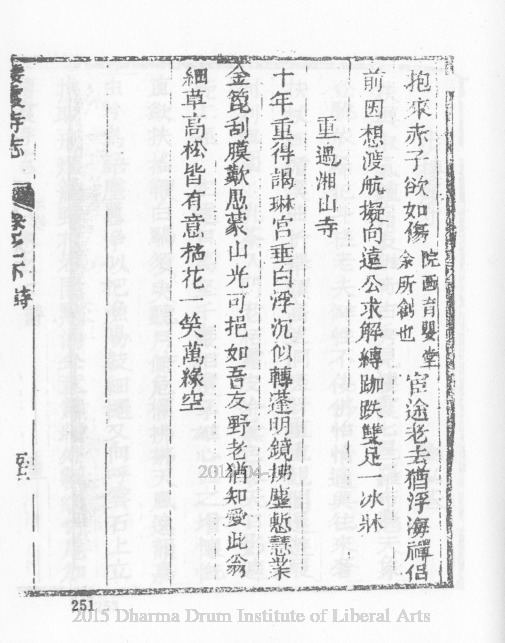 抱來赤子欲如傷院西育嬰堂余所創也宦途老去猶浮海禪侶
前因想渡航擬向遠公求解縛跏趺雙足一冰牀
重過湘山寺
十年重得謁琳宮垂白浮沉似轉蓬明鏡拂塵慙慧業
金篦刮膜歎愚蒙山光可挹如吾友野老猶知愛此翁
細草高松皆有意拈花一笑萬緣空
寺志 下 詩
251
2015 Dharma Drum Institute of Liberal Arts